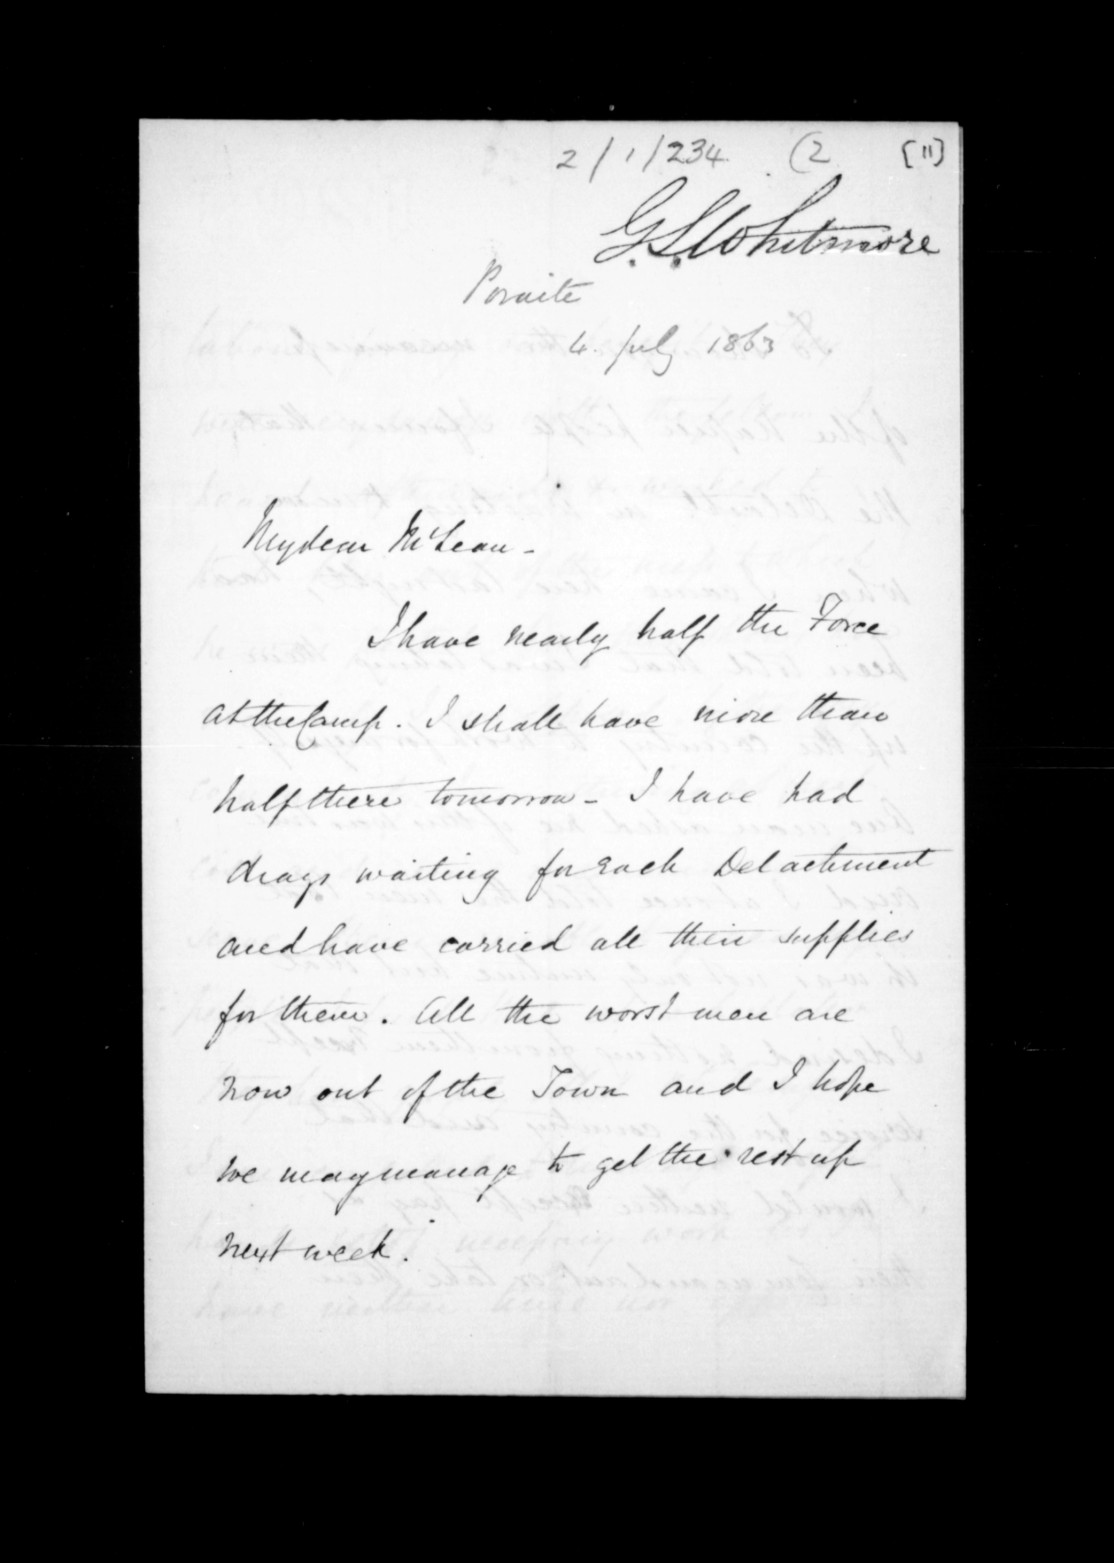 2/1/234 (2 [11]
G.S. Whitmore
Poraite
4. July 1863
My dear McLean -
I have nearly half the Force
at the Camp. I shall have more than
half there tomorrow - I have had
drays waiting for each Detachment
and have carried all their supplies
for them. All the worst men are
now out of the Town and I hope
we may manage to get the rest up
next week.